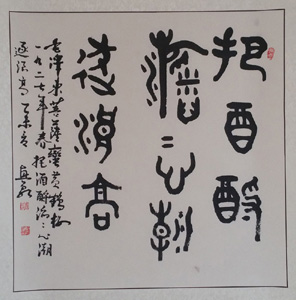 把酉酹
滔〻心朝
逐浪高
毛澤東菩薩蠻黃鶴樓
一九二七年春把酒酹滔〻心潮
逐浪高 乙未